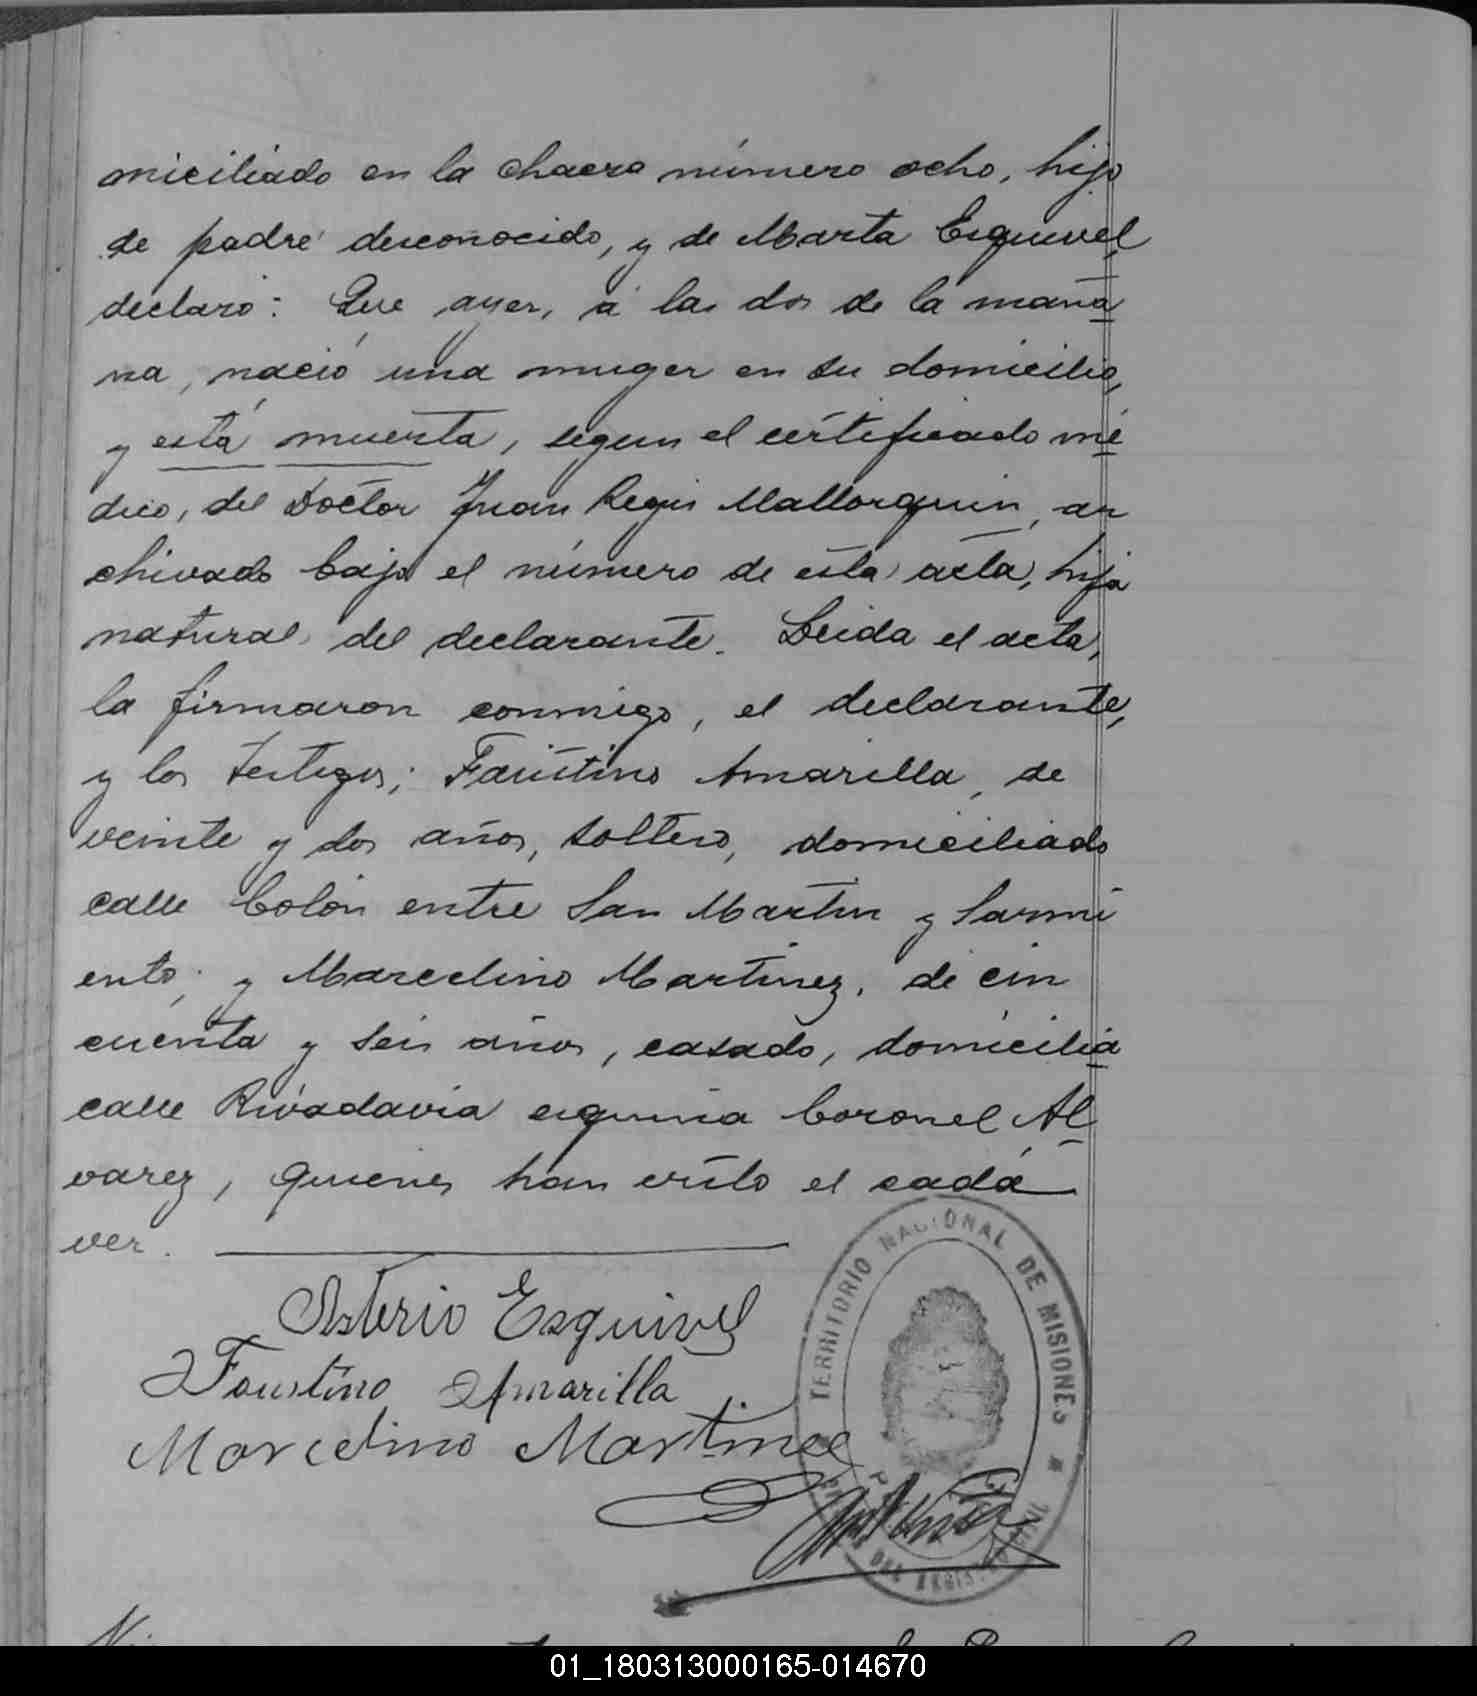 miciliado en la chacra número ocho, hijo
de padre desconocido, y de Marta Esquivel,
declaró: Que ayer, á las dos de la maña
na, nació una muger en su domicilio,
y está muerta, segun el certificado mé
dico, del Doctor Juan Regis Mallorquin, ar
chivado bajo el número de esta acta, hija
natural del declarante. Leida el acta,
la firmaron conmigo, el declarante,
y los testigos; Faustino Amarilla, de
veinte y dos años, soltero, domiciliado
calle Colón entre San Martin y Sarmi
ento; y Marcelino Martinez, de cin
cuenta y seis años, casado, domicilia
calle Rivadavia esquina Coronel Al
varez, quienes han visto el cadá
ver.
Asterio Esquivel
Faustino Amarilla
Marcelino Martinez
TERRITORIO NACIONAL DE MISIONES
01_180313000165-014670